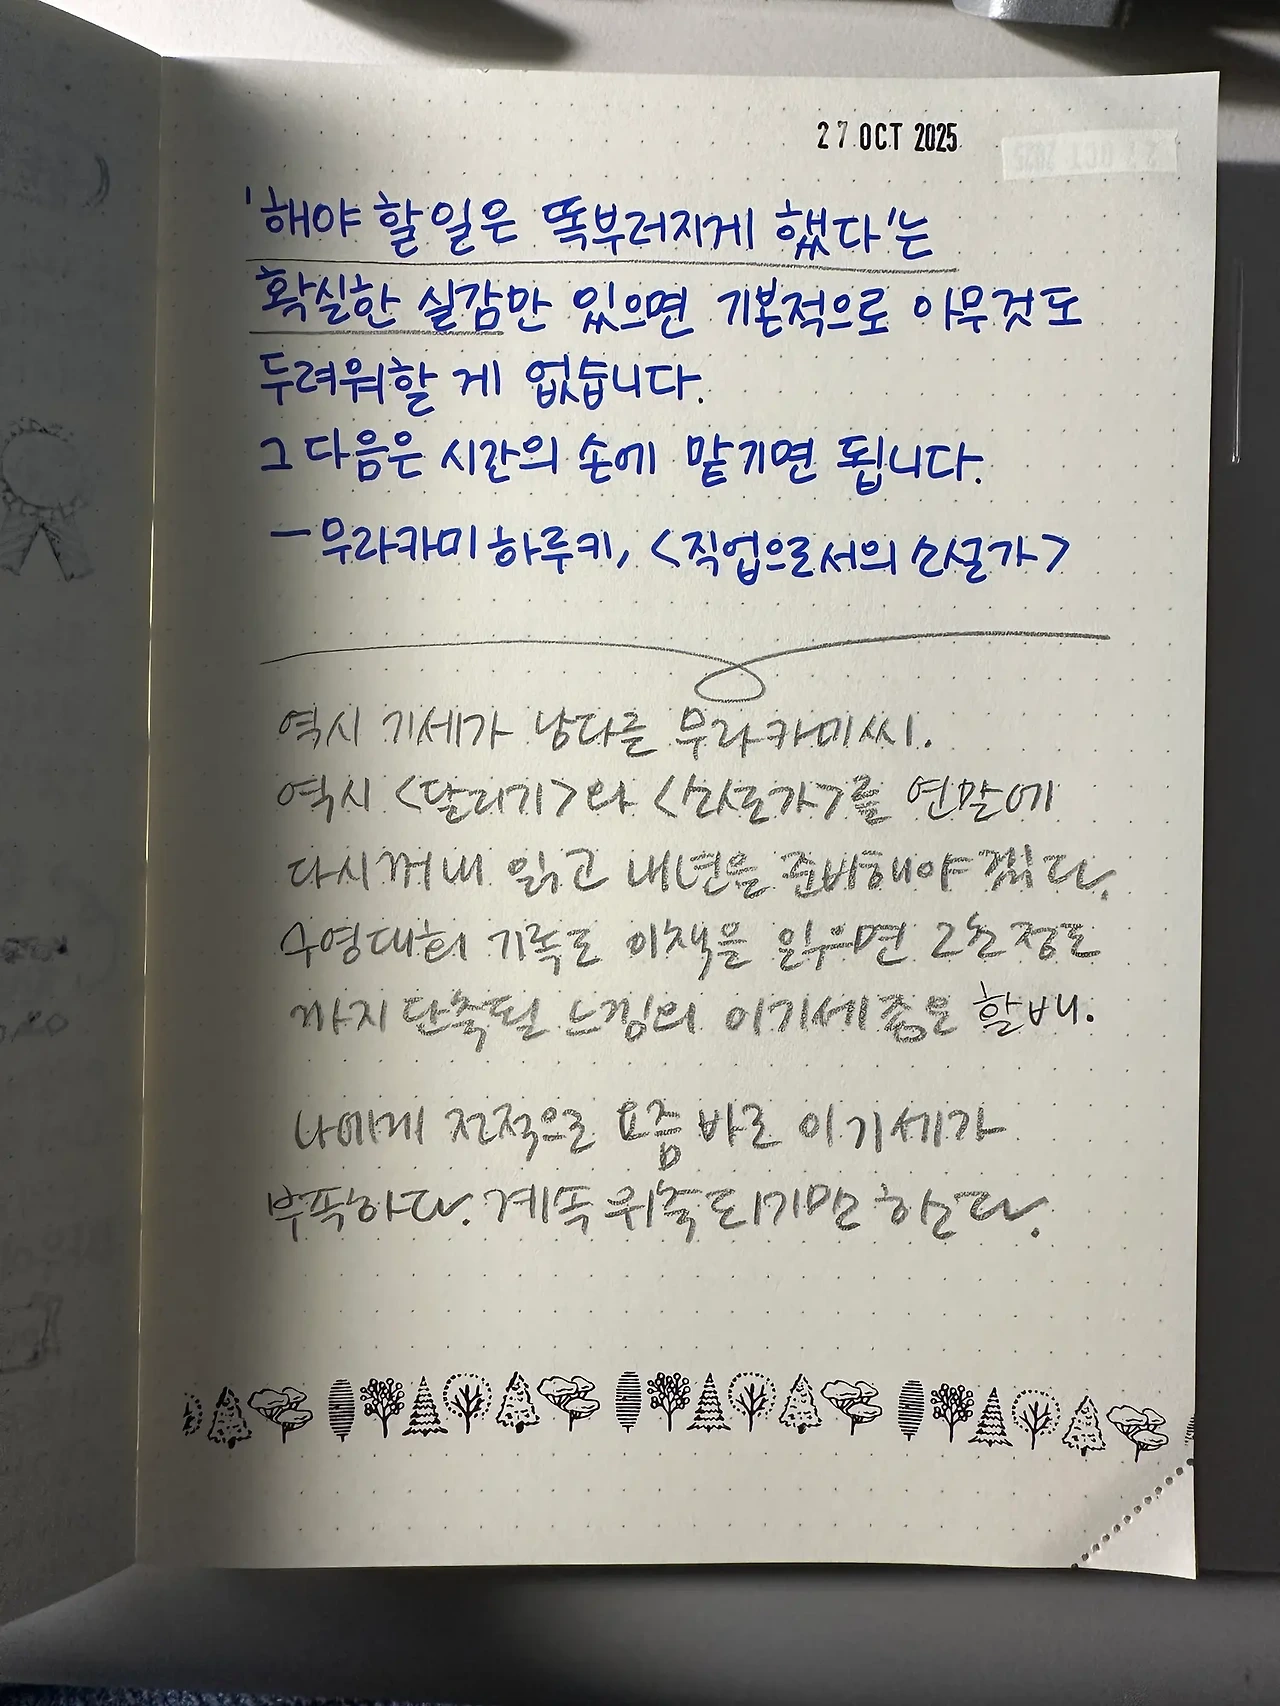 27 OCT 2025
'해야 할 일은 똑부러지게 했다'는
확실한 실감만 있으면 기본적으로 아무것도
두려워할 게 없습니다.
그 다음은 시간의 손에 맡기면 됩니다.
— 무라카미 하루키, <직업으로서의 소설가>
역시 기세가 남다른 무라카미씨.
역시 <달리기>와 <소설가>를 연말에
다시 꺼내 읽고 내년을 준비해야겠다.
수영대회 기록도 이책을 읽으면 2초 정도
까지 단축될 느낌의 이 기세 좋은 할배.
나에게 전적으로 요즘 바로 이 기세가
부족하다. 계속 위축되기만 한다.